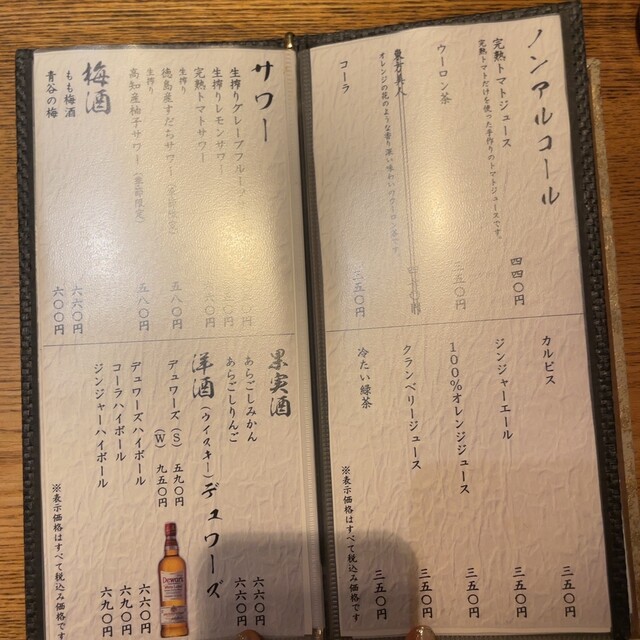 ノンアルコール
完熟トマトジュース 四四〇円
完熟トマトだけを使った手作りのトマトジュースです。
ウーロン茶 三五〇円
東方美人
オレンジの花のような香り深い味わいのウーロン茶です。
コーラ 三五〇円
カルピス 三五〇円
ジンジャーエール 三五〇円
100%オレンジジュース 三五〇円
クランベリージュース 三五〇円
冷たい緑茶 三五〇円
※表示価格はすべて税込み価格です
サワー
生搾りグレープフルーツ
生搾りレモンサワー
完熟トマトサワー
生搾り
徳島産すだちサワー(季節限定) 五八〇円
生搾り
高知産柚子サワー(季節限定) 五八〇円
梅酒
もも梅酒 六六〇円
青谷の梅 六〇〇円
果実酒
あらごしみかん 六六〇円
あらごしりんご 六六〇円
洋酒(ウイスキー)デュワーズ
デュワーズ(S) 五九〇円
(W) 九五〇円
デュワーズハイボール 六六〇円
コーラハイボール 六九〇円
ジンジャーハイボール 六九〇円
※表示価格はすべて税込み価格です
Dewar's